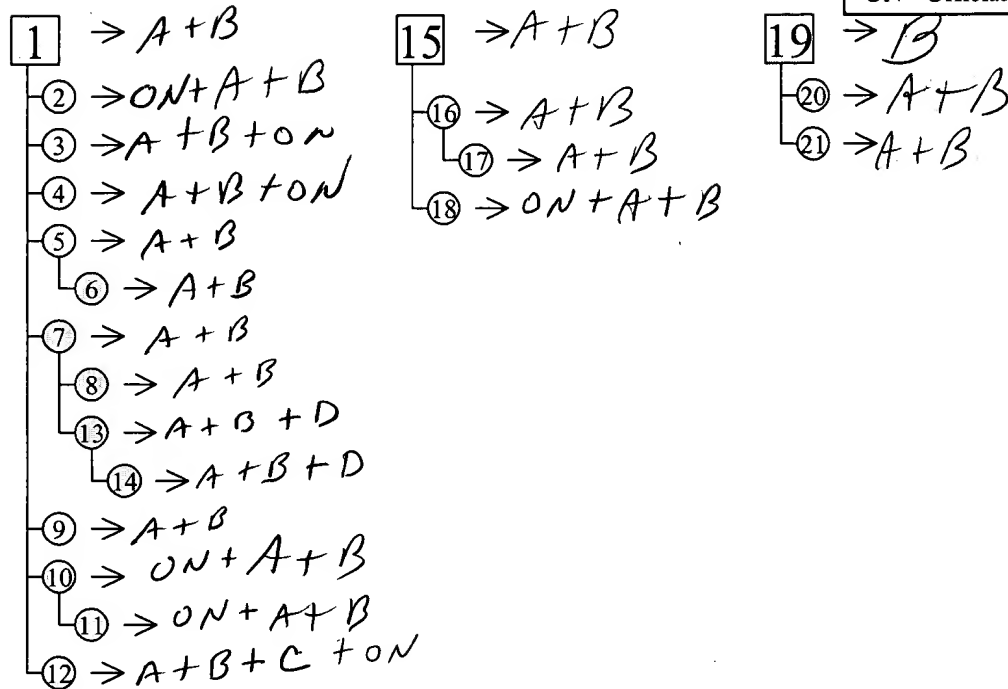 1 → A + B
② → ON + A + B
③ → A + B + ON
④ → A + B + ON
⑤ → A + B
⑥ → A + B
⑦ → A + B
⑧ → A + B
⑬ → A + B + D
⑭ → A + B + D
⑨ → A + B
⑩ → ON + A + B
⑪ → ON + A + B
⑫ → A + B + C + ON
15 → A + B
⑯ → A + B
⑰ → A + B
⑱ → ON + A + B
19 → B
⑳ → A + B
㉑ → A + B